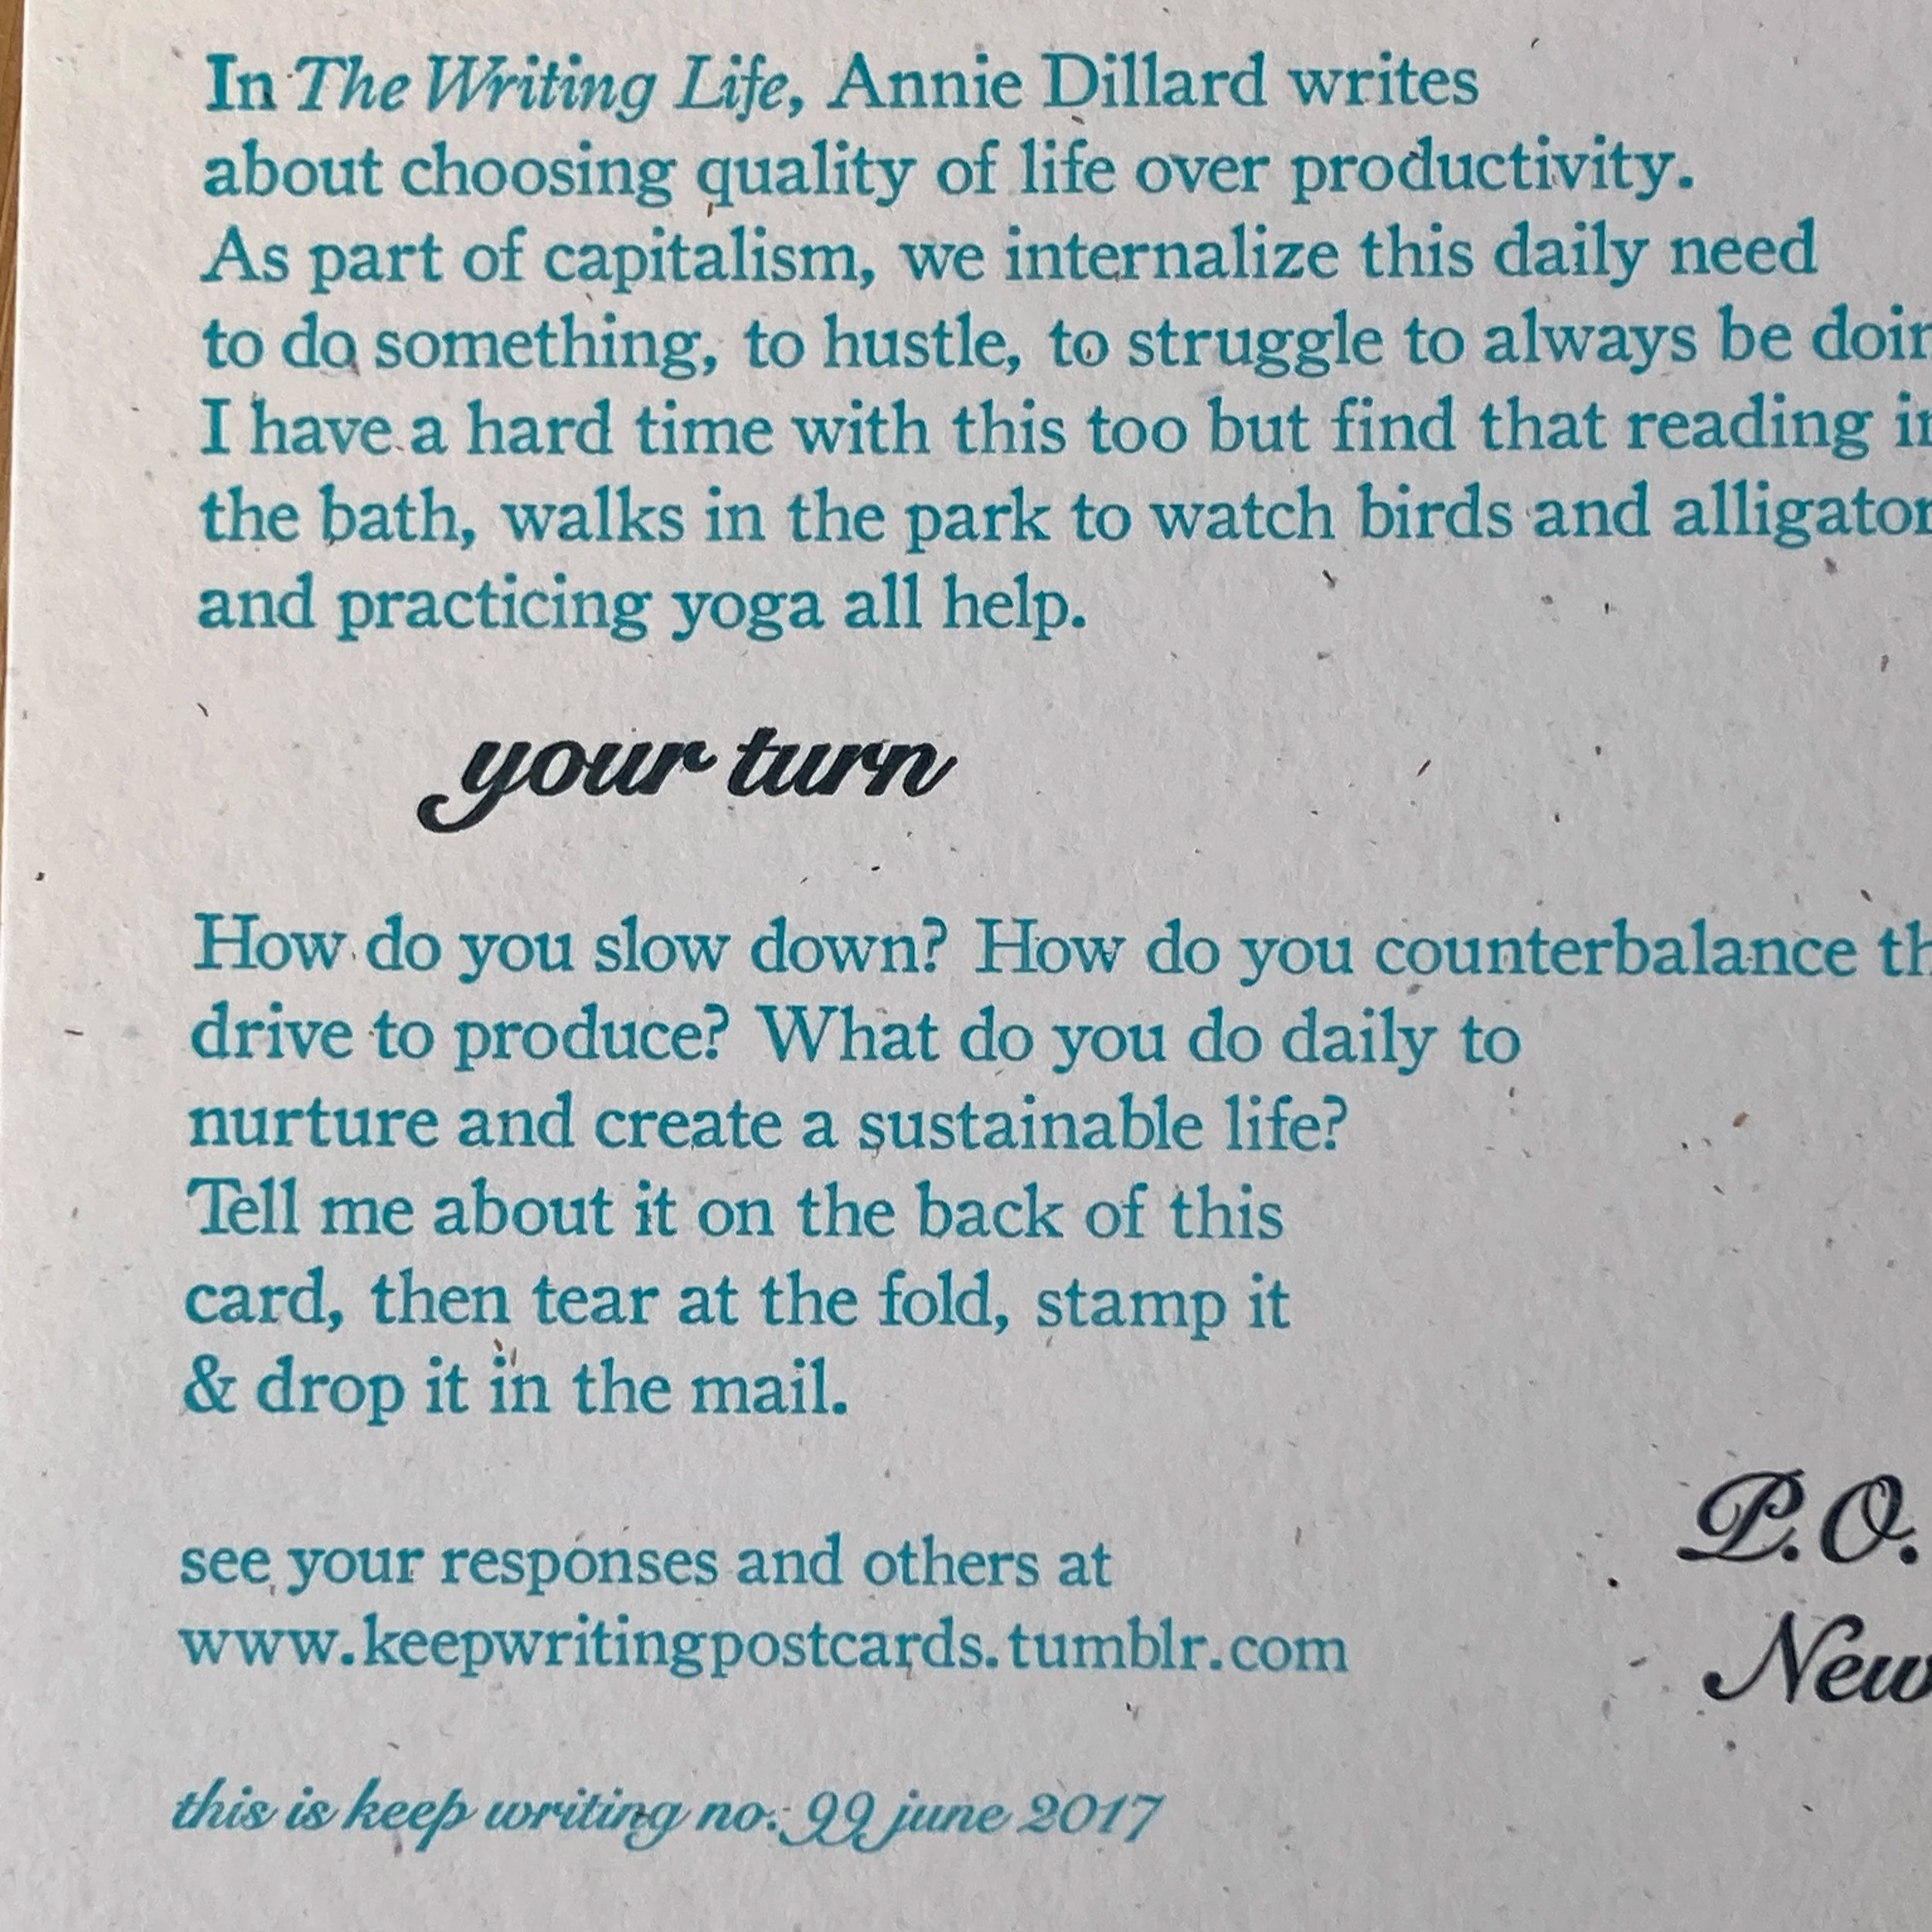 In The Writing Life, Annie Dillard writes
about choosing quality of life over productivity.
As part of capitalism, we internalize this daily need
to do something, to hustle, to struggle to always be doin
I have a hard time with this too but find that reading in
the bath, walks in the park to watch birds and alligator
and practicing yoga all help.
your turn
How do you slow down? How do you counterbalance th
drive to produce? What do you do daily to
nurture and create a sustainable life?
Tell me about it on the back of this
card, then tear at the fold, stamp it
& drop it in the mail.
P.O.
see your responses and others at
www.keepwritingpostcards.tumblr.com
New
this is keep writing no. 99 june 2017